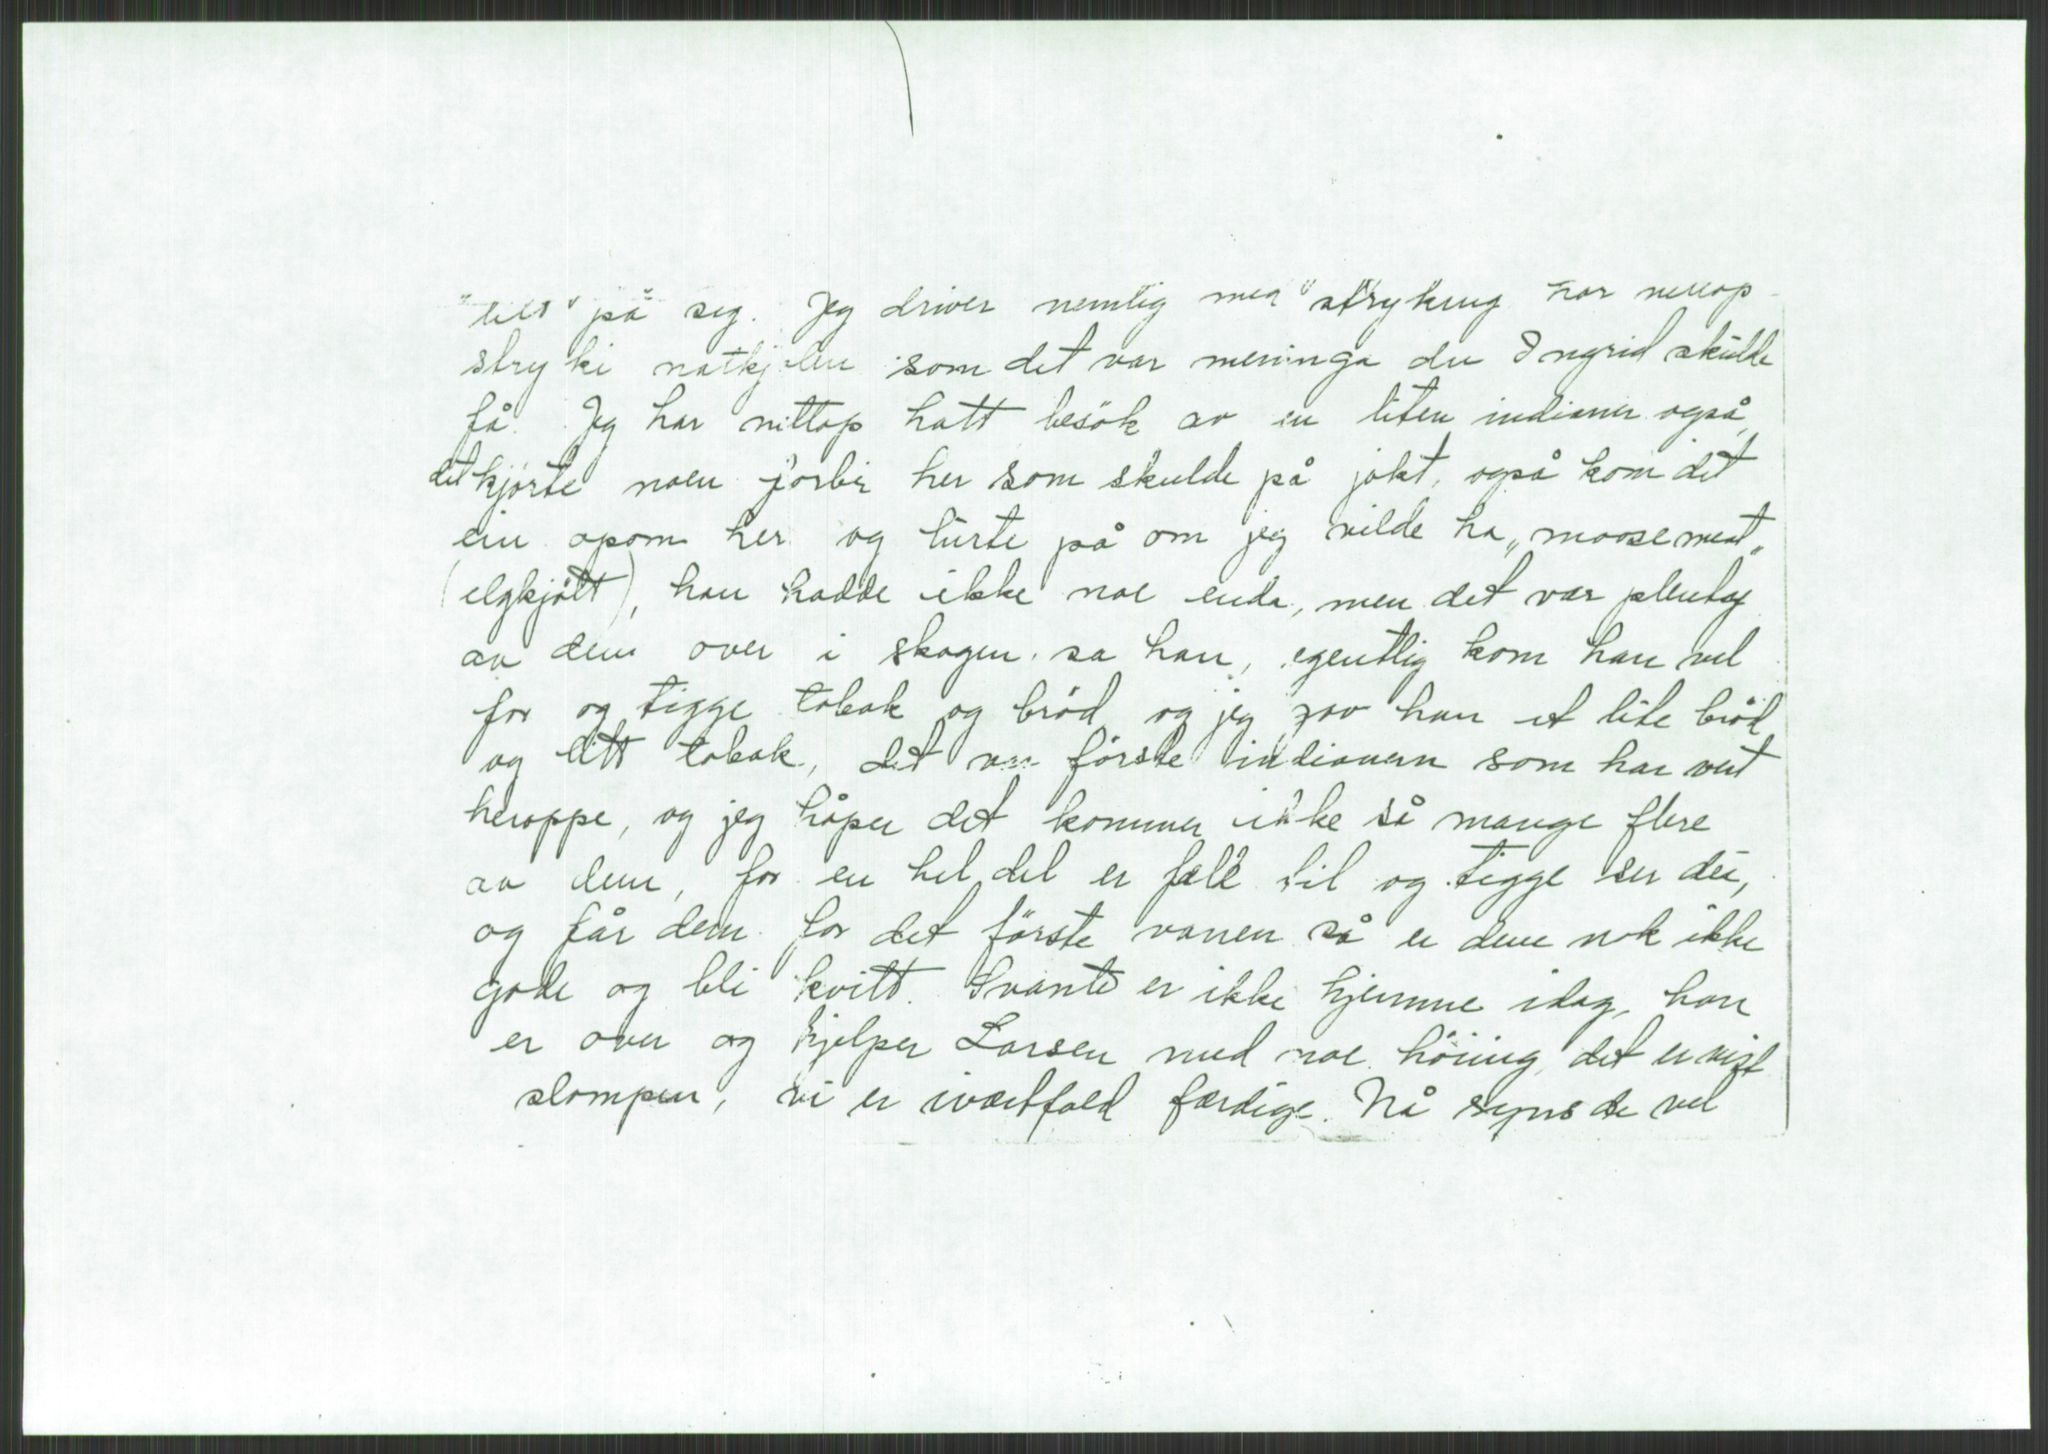 på seg. Jeg driver nemlig med "stryking har nettop
stryki natkjolen som det var meninga du Ingrid skulde
få. Jeg har nettop hatt besök av en liten indianer også,
det kjörte noen forbi her som skulde på jakt, også kom det
ein opom her og lurte på om jeg vilde ha „moosemeat„
(elgkjött), han hadde ikke noe enda, men det var plenty
av dem over i skogen sa han, egentlig kom han vel
for og tigge tobak og bröd og jeg gav han et lite bröd
og litt tobak, det var förste indianern som har vert
heroppe, og jeg håper det kommer ikke så mange flere
av dem, for en hel del er fæle til og tigge ser dei,
og får dem for det förste vanen så er dem nok ikke
gode og bli kvitt. Svante er ikke hjemme idag, han
er over og hjelper Larsen med noe höiing, det er vist
slompen, vi er ivertfald færdige. Nå synes de vel